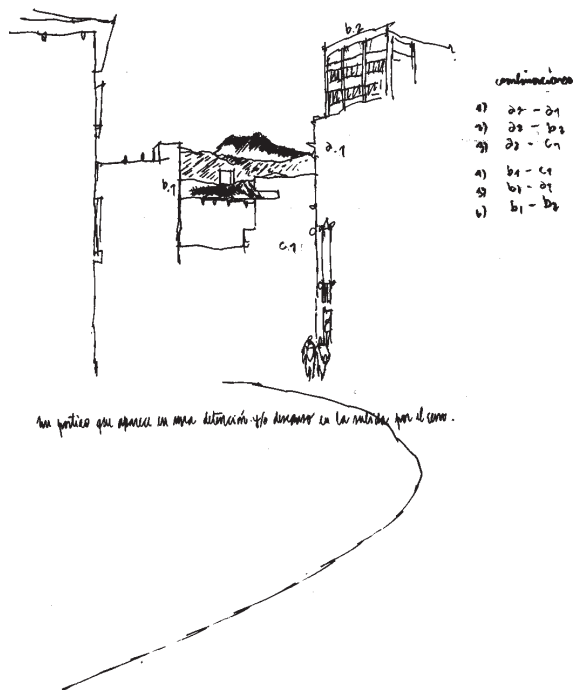 b.2
combinaciones
a.1
b.1
c.1
1) a2 - a1
2) a2 - b2
3) a2 - c1
4) b1 - c1
5) b1 - a1
6) b1 - b2
un portico que aparece en una detención y/o descanso en la subida por el cerro.